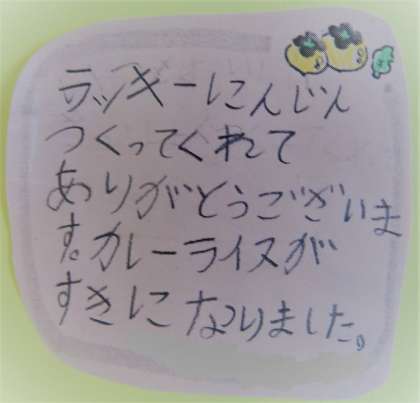 ラッキーにんじん
つくってくれて
ありがとうございま
す。カレーライスが
すきになりました。